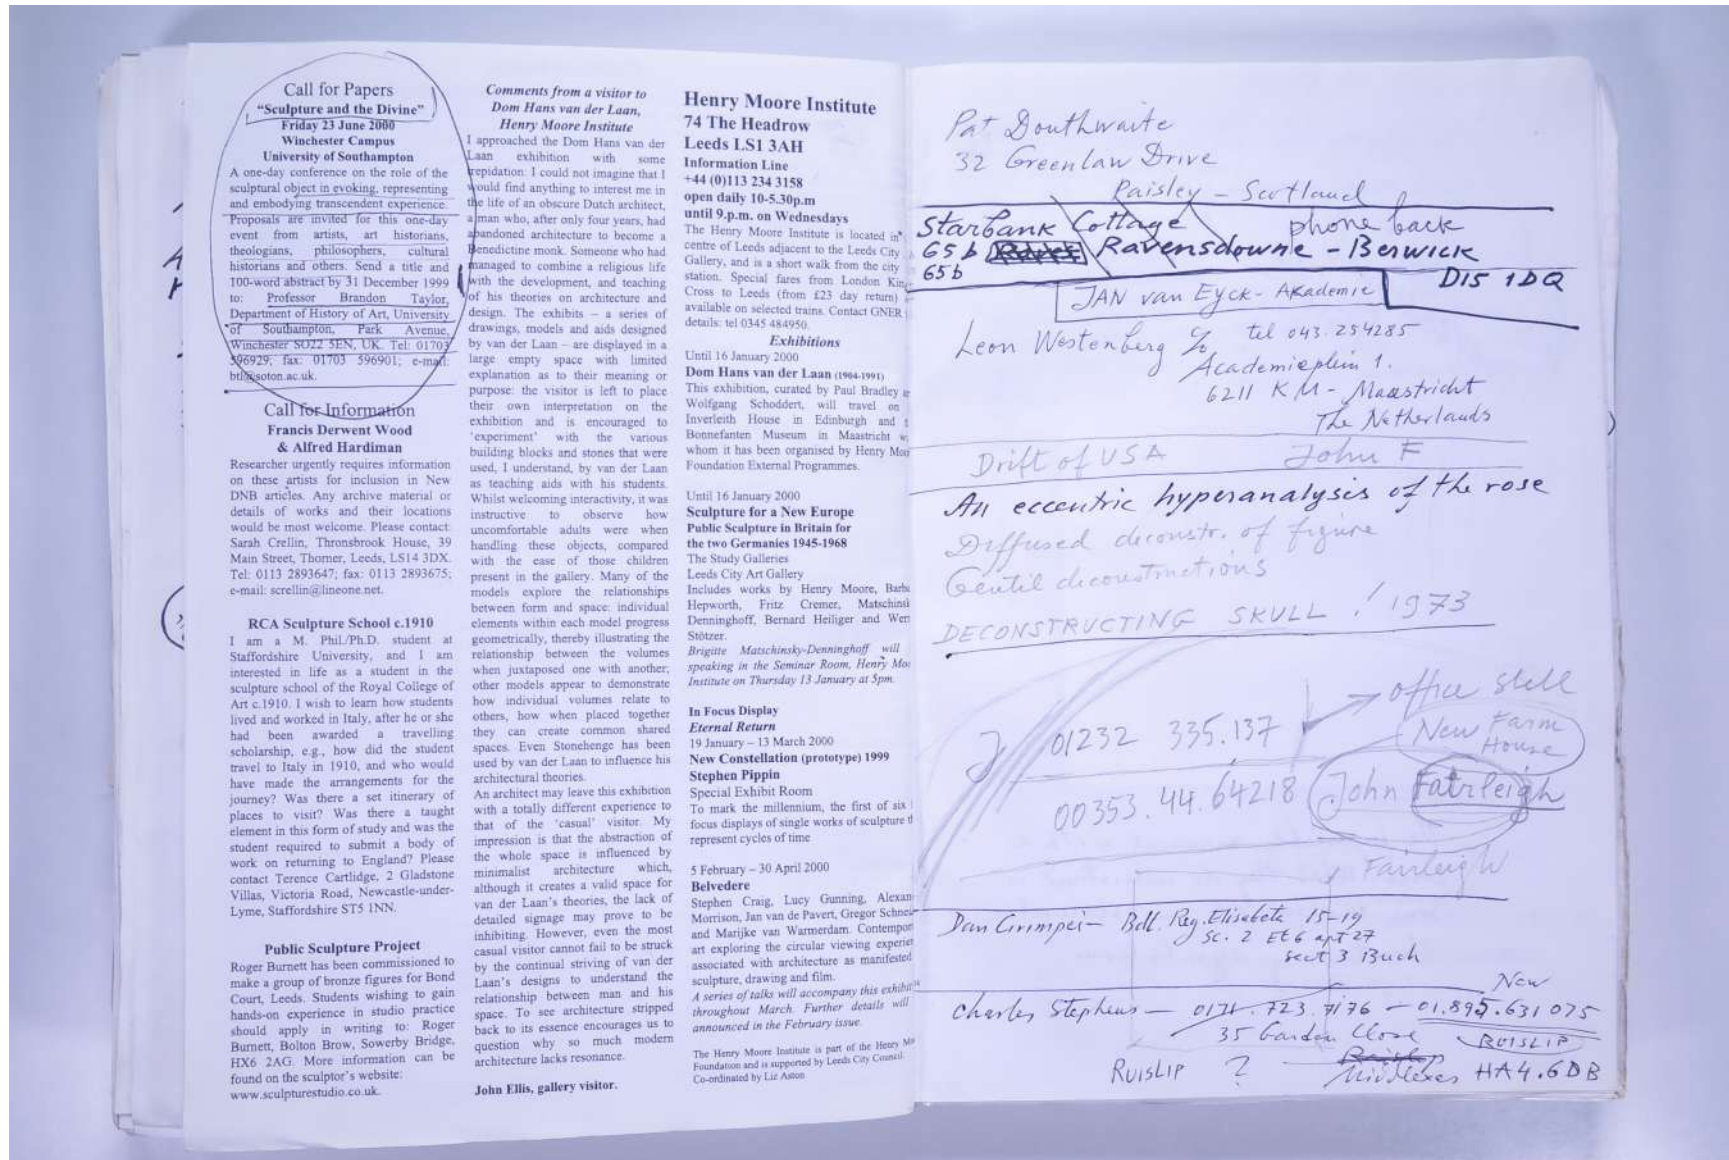 Call for Papers
"Sculpture and the Divine"
Friday 23 June 2000
Winchester Campus
University of Southampton
A one-day conference on the role of the
sculptural object in evoking, representing
and embodying transcendent experience.
Proposals are invited for this one-day
event from artists, art historians,
theologians, philosophers, cultural
historians and others. Send a title and
100-word abstract by 31 December 1999
to: Professor Brandon Taylor,
Department of History of Art, University
of Southampton, Park Avenue,
Winchester SO22 5EN, UK. Tel: 01703
596929; fax: 01703 596901; e-mail:
btl@soton.ac.uk.
Call for Information
Francis Derwent Wood
& Alfred Hardiman
Researcher urgently requires information
on these artists for inclusion in New
DNB articles. Any archive material or
details of works and their locations
would be most welcome. Please contact:
Sarah Crellin, Thronsbrook House, 39
Main Street, Thorner, Leeds, LS14 3DX.
Tel: 0113 2893647; fax: 0113 2893675;
e-mail: screllin@lineone.net.
RCA Sculpture School c.1910
I am a M. Phil./Ph.D. student at
Staffordshire University, and I am
interested in life as a student in the
sculpture school of the Royal College of
Art c.1910. I wish to learn how students
lived and worked in Italy, after he or she
had been awarded a travelling
scholarship, e.g., how did the student
travel to Italy in 1910, and who would
have made the arrangements for the
journey? Was there a set itinerary of
places to visit? Was there a taught
element in this form of study and was the
student required to submit a body of
work on returning to England? Please
contact Terence Cartlidge, 2 Gladstone
Villas, Victoria Road, Newcastle-under-
Lyme, Staffordshire ST5 1NN.
Public Sculpture Project
Roger Burnett has been commissioned to
make a group of bronze figures for Bond
Court, Leeds. Students wishing to gain
hands-on experience in studio practice
should apply in writing to: Roger
Burnett, Bolton Brow, Sowerby Bridge,
HX6 2AG. More information can be
found on the sculptor's website:
www.sculpturestudio.co.uk.
Comments from a visitor to
Dom Hans van der Laan,
Henry Moore Institute
I approached the Dom Hans van der
Laan exhibition with some
trepidation: I could not imagine that I
would find anything to interest me in
the life of an obscure Dutch architect,
a man who, after only four years, had
abandoned architecture to become a
Benedictine monk. Someone who had
managed to combine a religious life
with the development, and teaching
of his theories on architecture and
design. The exhibits – a series of
drawings, models and aids designed
by van der Laan – are displayed in a
large empty space with limited
explanation as to their meaning or
purpose: the visitor is left to place
their own interpretation on the
exhibition and is encouraged to
'experiment' with the various
building blocks and stones that were
used, I understand, by van der Laan
as teaching aids with his students.
Whilst welcoming interactivity, it was
instructive to observe how
uncomfortable adults were when
handling these objects, compared
with the ease of those children
present in the gallery. Many of the
models explore the relationships
between form and space: individual
elements within each model progress
geometrically, thereby illustrating the
relationship between the volumes
when juxtaposed one with another;
other models appear to demonstrate
how individual volumes relate to
others, how when placed together
they can create common shared
spaces. Even Stonehenge has been
used by van der Laan to influence his
architectural theories.
An architect may leave this exhibition
with a totally different experience to
that of the 'casual' visitor. My
impression is that the abstraction of
the whole space is influenced by
minimalist architecture which,
although it creates a valid space for
van der Laan's theories, the lack of
detailed signage may prove to be
inhibiting. However, even the most
casual visitor cannot fail to be struck
by the continual striving of van der
Laan's designs to understand the
relationship between man and his
space. To see architecture stripped
back to its essence encourages us to
question why so much modern
architecture lacks resonance.
John Ellis, gallery visitor.
Henry Moore Institute
74 The Headrow
Leeds LS1 3AH
Information Line
+44 (0)113 234 3158
open daily 10-5.30p.m
until 9.p.m. on Wednesdays
The Henry Moore Institute is located in
centre of Leeds adjacent to the Leeds City
Gallery, and is a short walk from the city
station. Special fares from London Kin
Cross to Leeds (from £23 day return)
available on selected trains. Contact GNER
details: tel 0345 484950.
Exhibitions
Until 16 January 2000
Dom Hans van der Laan (1904-1991)
This exhibition, curated by Paul Bradley
Wolfgang Schoddert, will travel on
Inverleith House in Edinburgh and
Bonnefanten Museum in Maastricht w
whom it has been organised by Henry Moo
Foundation External Programmes.
Until 16 January 2000
Sculpture for a New Europe
Public Sculpture in Britain for
the two Germanies 1945-1968
The Study Galleries
Leeds City Art Gallery
Includes works by Henry Moore, Barba
Hepworth, Fritz Cremer, Matschinsk
Denninghoff, Bernard Heiliger and Wern
Stötzer.
Brigitte Matschinsky-Denninghoff will
speaking in the Seminar Room, Henry Moo
Institute on Thursday 13 January at 5pm.
In Focus Display
Eternal Return
19 January – 13 March 2000
New Constellation (prototype) 1999
Stephen Pippin
Special Exhibit Room
To mark the millennium, the first of six
focus displays of single works of sculpture
represent cycles of time
5 February – 30 April 2000
Belvedere
Stephen Craig, Lucy Gunning, Alexan
Morrison, Jan van de Pavert, Gregor Schnei
and Marijke van Warmerdam. Contempor
art exploring the circular viewing experien
associated with architecture as manifested
sculpture, drawing and film.
A series of talks will accompany this exhibit
throughout March. Further details will
announced in the February issue.
The Henry Moore Institute is part of the Henry Mo
Foundation and is supported by Leeds City Council.
Co-ordinated by Liz Aston
Pat Douthwaite
32 Greenlaw Drive
Paisley – Scotland
Starbank Cottage phone back
65b Ravensdowne – Berwick
65b
D15 1DQ
JAN van Eyck – Akademie
Leon Westenberg c/o tel 043.254285
Academieplein 1.
6211 KM – Maastricht
The Netherlands
Drift of USA John F
An eccentric hyperanalysis of the rose
Diffused deconstr. of figure
Gentil deconstructions
DECONSTRUCTING SKULL! 1973
office
New Farm
House
01232 335.137
00353.44.64218 John Fairleigh
Fairleigh
Dan Grimpei – Bdl. Reg. Elisabeta 15-19
Sc. 2 Et 6 apt 27
sect 3 Buch
New
Charles Stephens – 0171.723.7176 – 01.895.631075
35 Garden Close RUISLIP
RUISLIP ? Middlesex HA4.6DB